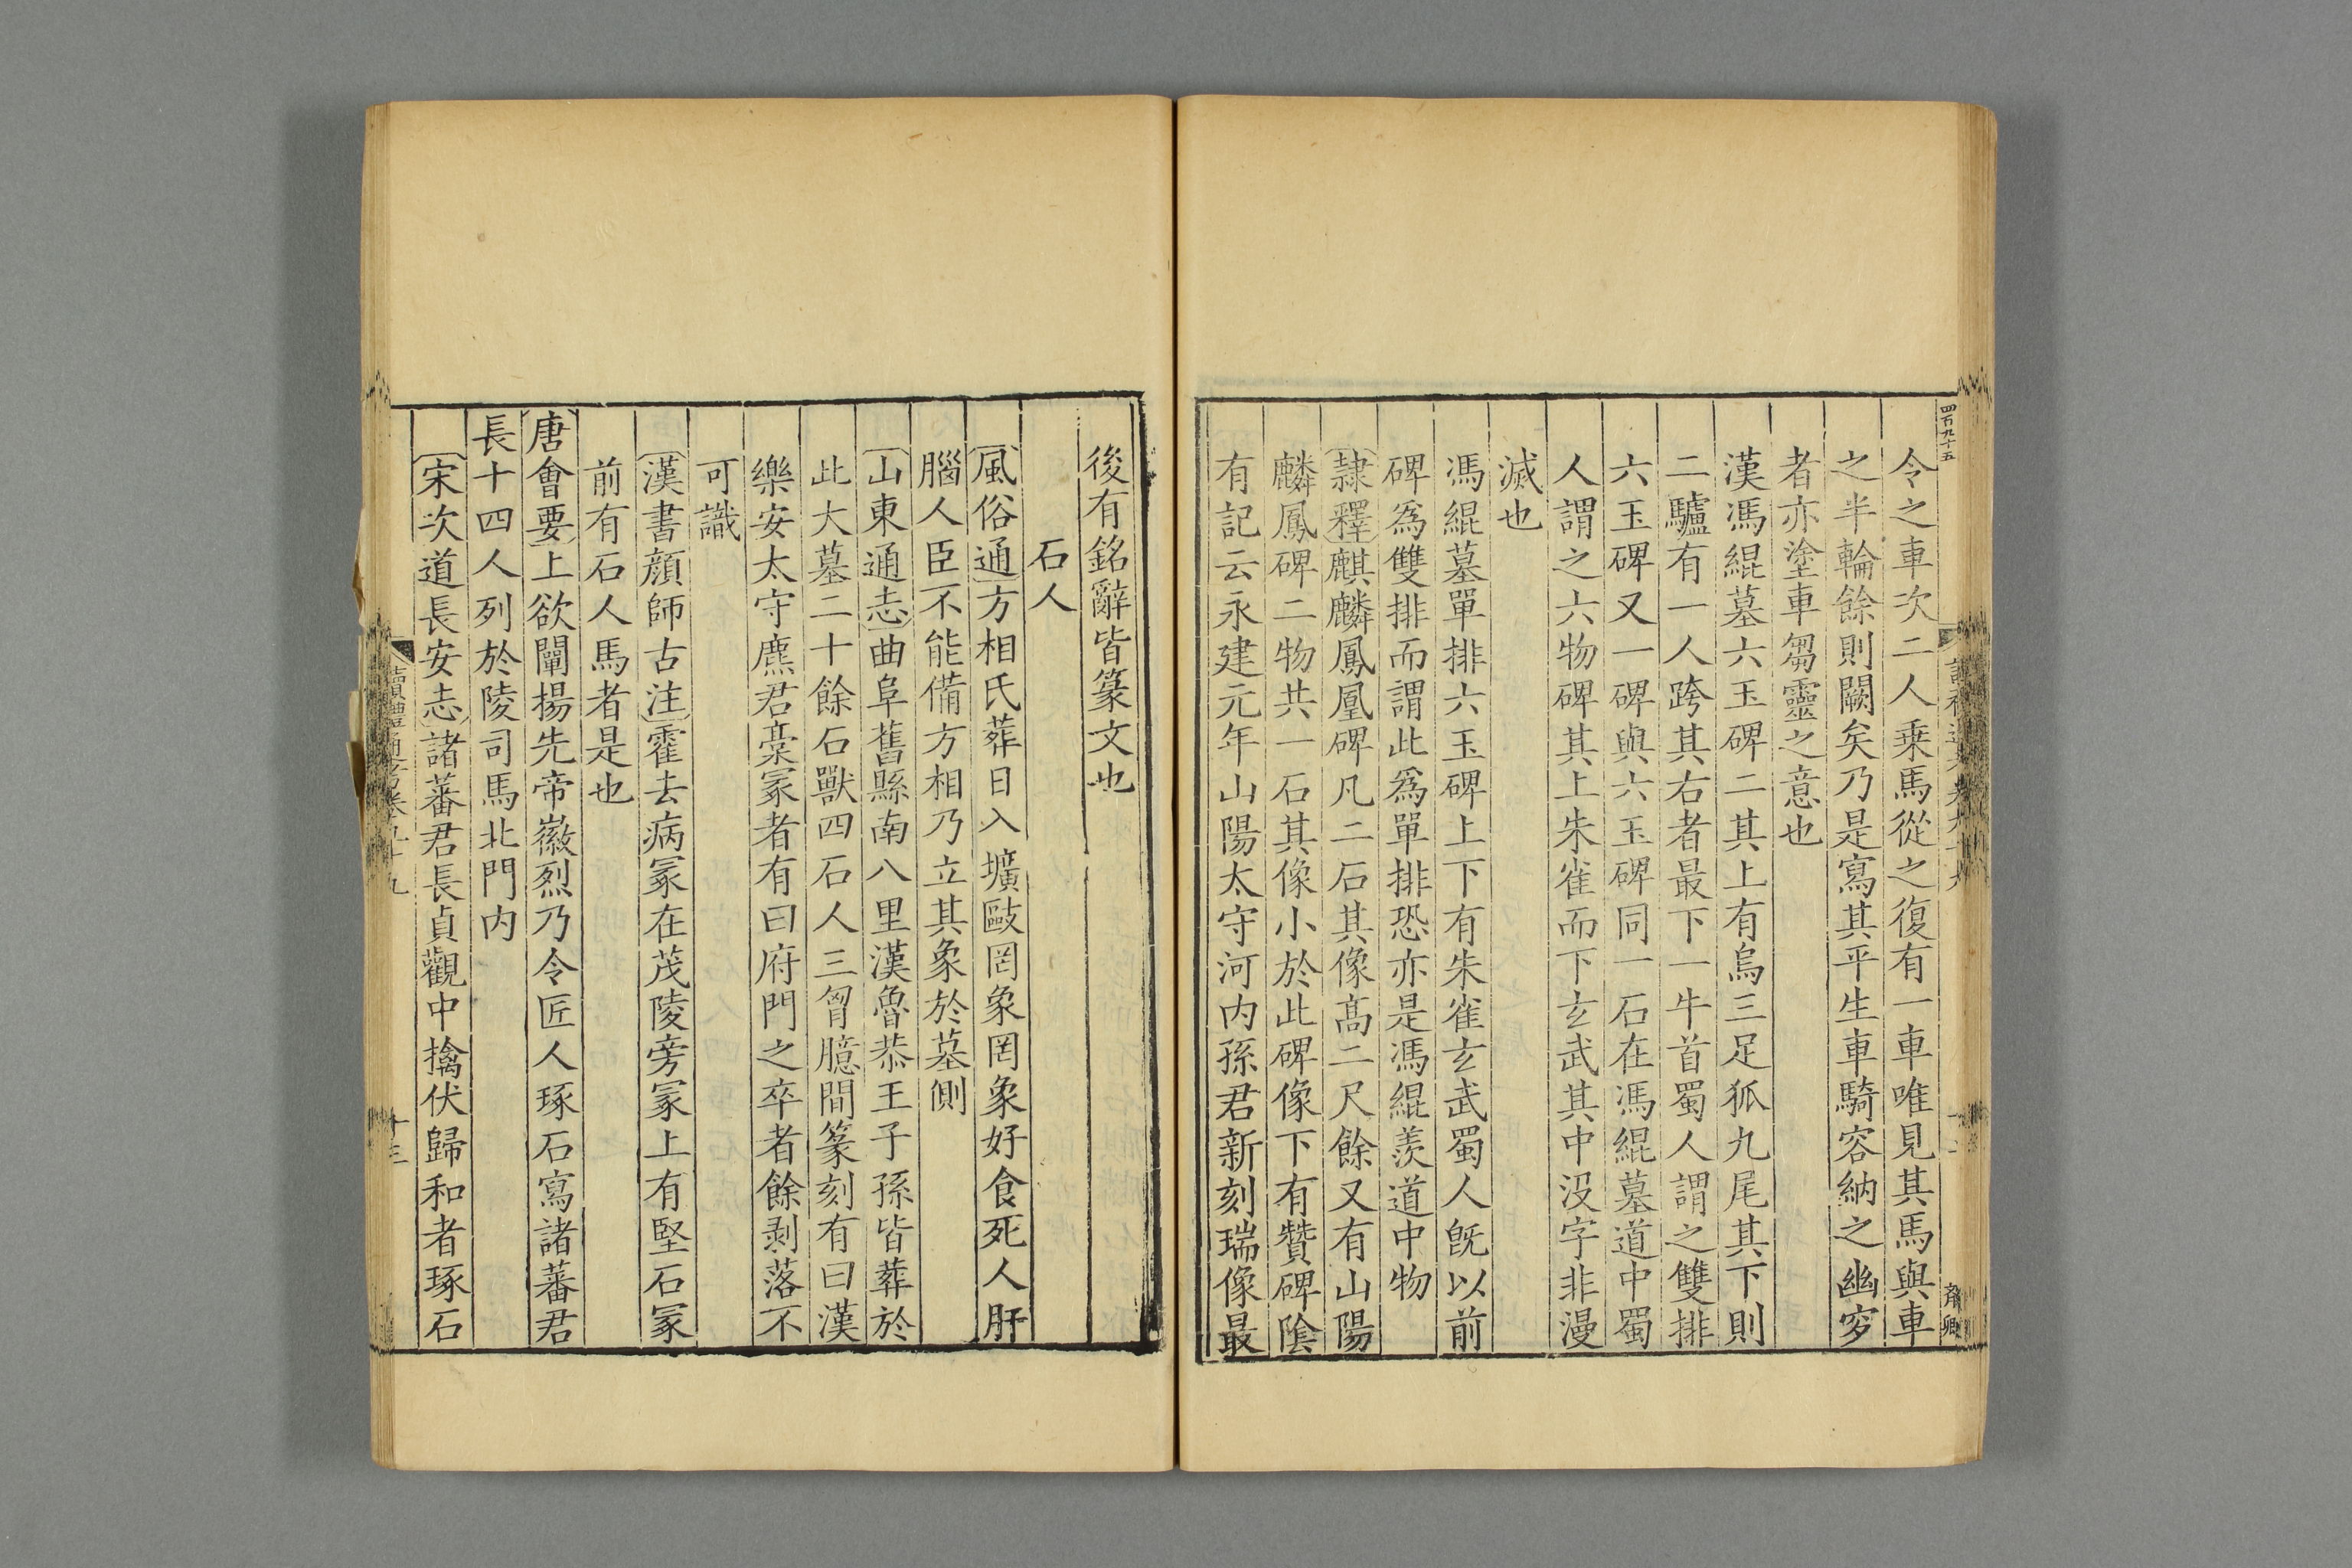 四百九十五
齊卿
令之車次二人乗馬從之復有一車唯見其馬與車
之半輪餘則闕矣乃是寫其平生車騎容納之幽穸
者亦塗車芻靈之意也
漢馮緄墓六玉碑二其上有烏三足狐九尾其下則
二驢有一人跨其右者最下一牛首蜀人謂之雙排
六玉碑又一碑與六玉碑同一石在馮緄墓道中蜀
人謂之六物碑其上朱雀而下玄武其中没字非漫
滅也
馮緄墓單排六玉碑上下有朱雀玄武蜀人旣以前
碑爲雙排而謂此爲單排恐亦是馮緄羨道中物
隷釋麒麟鳳凰碑凡二石其像髙二尺餘又有山陽
麟鳳碑二物共一石其像小於此碑像下有贊碑陰
有記云永建元年山陽太守河内孫君新刻瑞像最
後有銘辭皆篆文也
石人
風俗通方相氏葬日入壙敺罔象罔象好食死人肝
腦人臣不能備方相乃立其象於墓側
山東通志曲阜舊縣南八里漢魯恭王子孫皆葬於
此大墓二十餘石獸四石人三胷臆間篆刻有曰漢
樂安太守麃君亭冢者有曰府門之卒者餘剥落不
可識
漢書顔師古注霍去病冢在茂陵旁冢上有堅石冢
前有石人馬者是也
唐會要上欲闡揚先帝徽烈乃令匠人琢石寫諸蕃君
長十四人列於陵司馬北門内
宋次道長安志諸蕃君長貞觀中擒伏歸和者琢石
十三